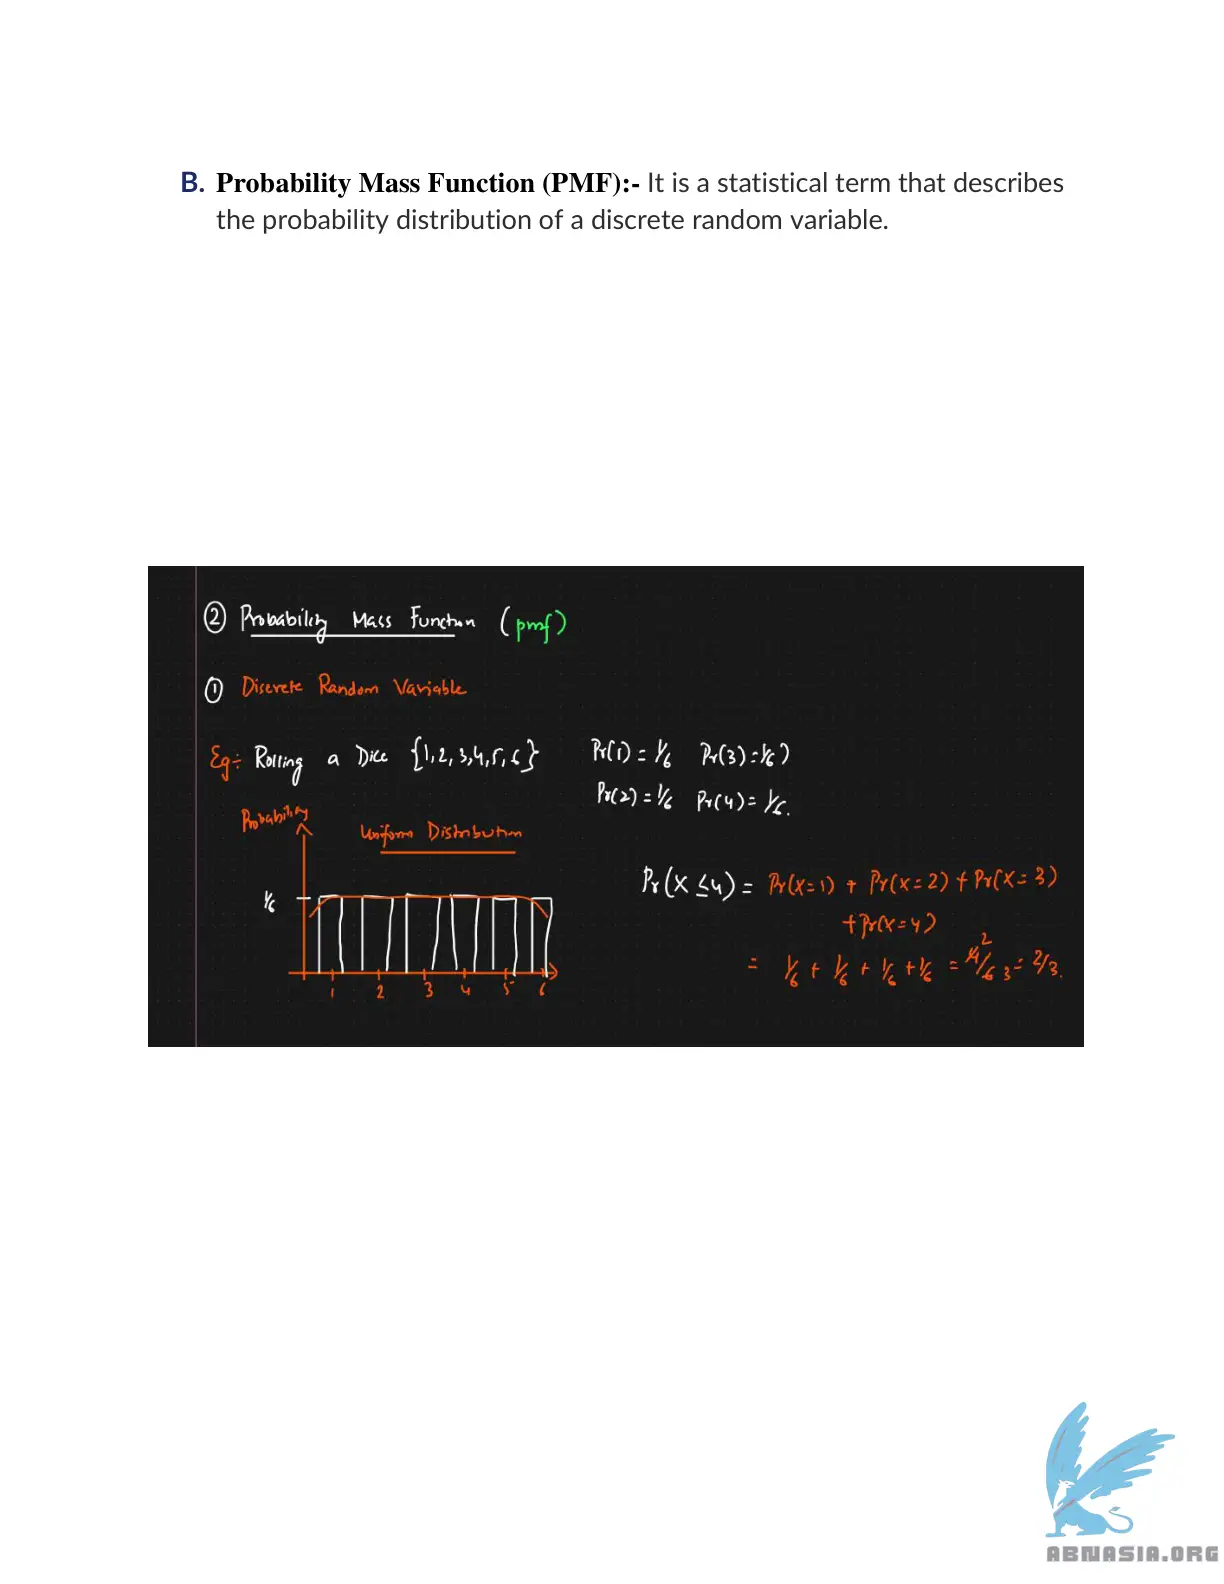 B. Probability Mass Function (PMF):- It is a statistical term that describes
the probability distribution of a discrete random variable.
② Probability Mass Function (pmf)
① Discrete Random Variable
Eg÷ Rolling a Dice {1,2,3,4,5,6}
Pr(1) = 1/6 Pr(3) = 1/6)
Pr(2) = 1/6 Pr(4) = 1/6.
Probability
Uniform Distribution
1/6
1 2 3 4 5 6
Pr(X ≤4) = Pr(X=1) + Pr(X=2) + Pr(X=3)
+ Pr(X=4)
= 1/6 + 1/6 + 1/6 + 1/6 = 4/6 2 3 = 2/3.
ABNASIA.ORG